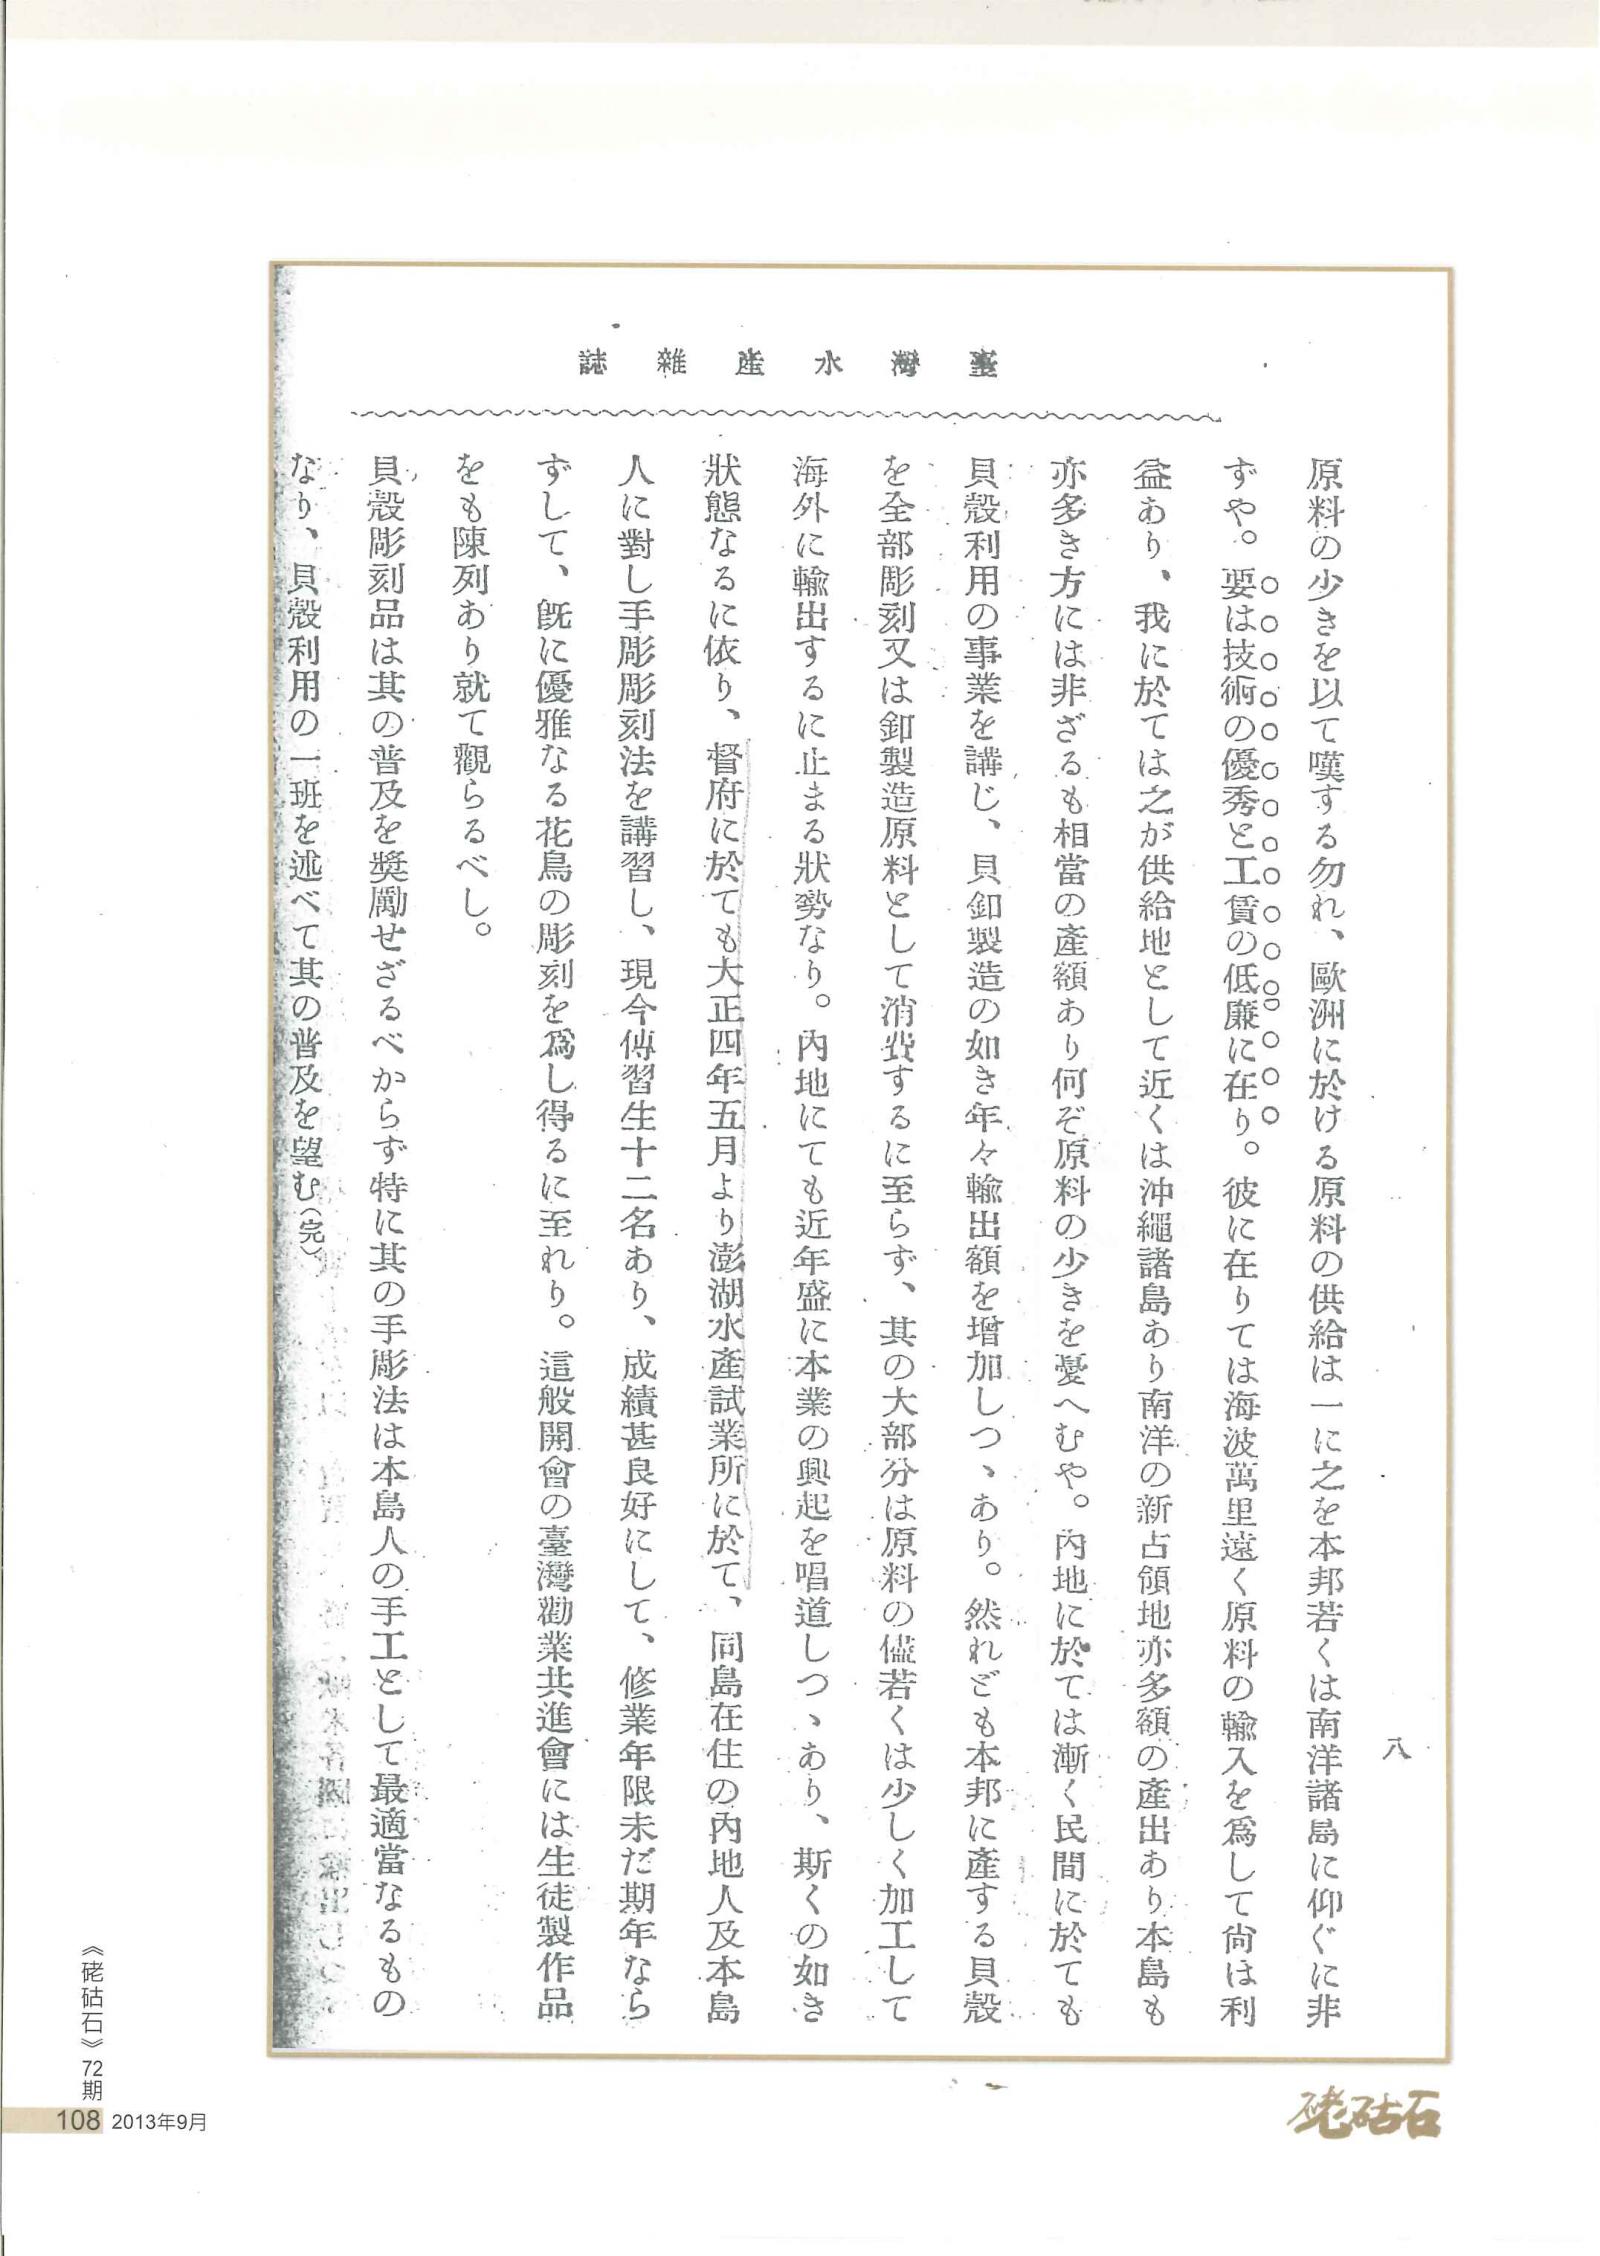 臺灣水產雜誌
八
原料の少きを以て嘆する勿れ、歐洲に於ける原料の供給は一に之を本邦若くは南洋諸島に仰ぐに非
ずや。要は技術の優秀と工賃の低廉に在り。彼に在りては海波萬里遠く原料の輸入を爲して尙は利
益あり、我に於ては之が供給地として近くは沖繩諸島あり南洋の新占領地亦多額の產出あり本島も
亦多き方には非ざるも相當の產額あり何ぞ原料の少きを憂へむや。內地に於ては漸く民間に於ても
貝殼利用の事業を講じ、貝釦製造の如き年々輸出額を增加しつゝあり。然れども本邦に產する貝殼
を全部彫刻又は釦製造原料として消費するに至らず、其の大部分は原料の儘若くは少しく加工して
海外に輸出するに止まる狀勢なり。內地にても近年盛に本業の興起を唱道しつゝあり、斯くの如き
狀態なるに依り、督府に於ても大正四年五月より澎湖水產試業所に於て、同島在住の內地人及本島
人に對し手彫彫刻法を講習し、現今傳習生十二名あり、成績甚良好にして、修業年限未だ期年なら
ずして、旣に優雅なる花鳥の彫刻を爲し得るに至れり。這般開會の臺灣勸業共進會には生徒製作品
をも陳列あり就て觀らるべし。
貝殼彫刻品は其の普及を奬勵せざるべからず特に其の手彫法は本島人の手工として最適當なるもの
なり、貝殼利用の一班を述べて其の普及を望む（完）
硓𥑮石
《硓𥑮石》72期
108 2013年9月